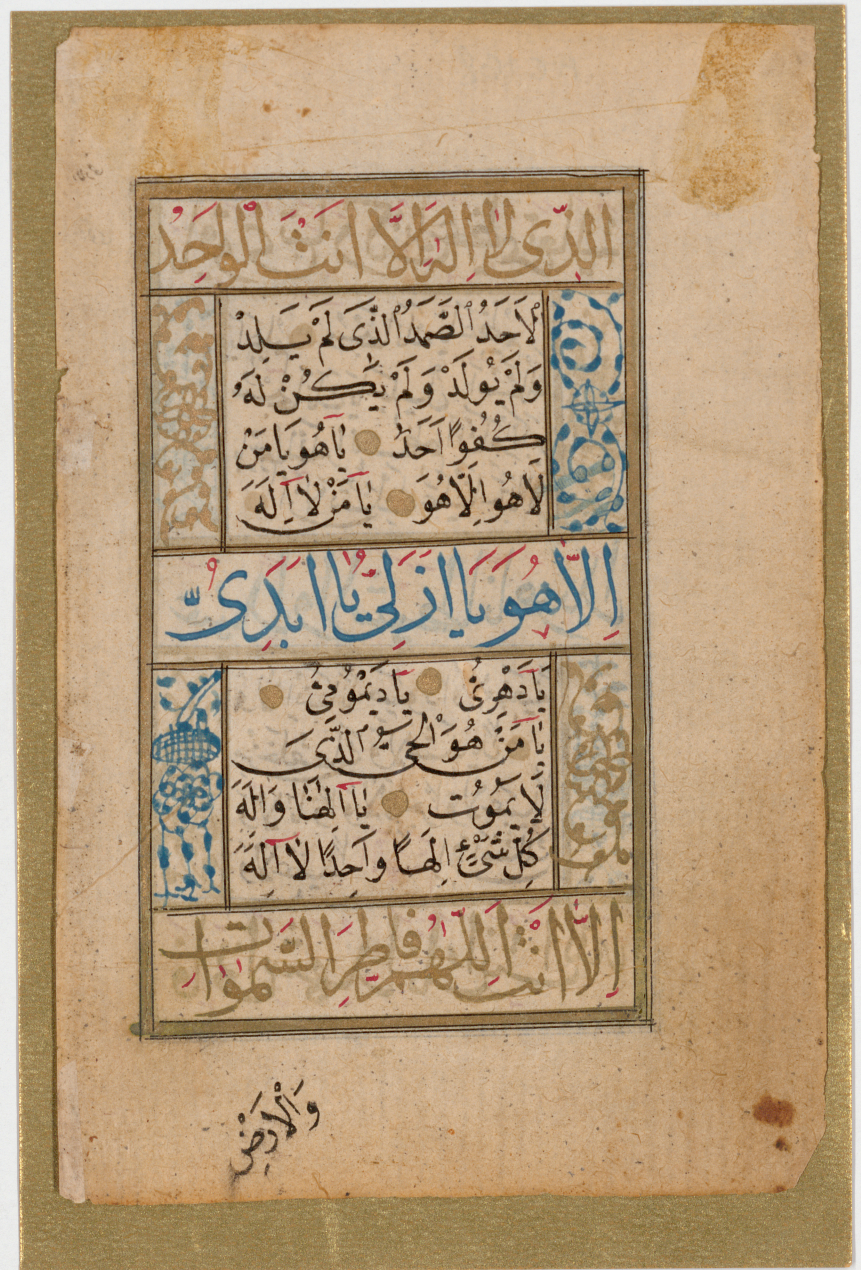 الَّذِى لَا اِلٰهَ اِلَّا اَنْتَ الْوَاحِدُ
الْاَحَدُ الصَّمَدُ الَّذِى لَمْ يَلِدْ
وَلَمْ يُولَدْ وَلَمْ يَكُنْ لَهُ
كُفُوًا اَحَدٌ يَا هُو يَا مَنْ
لَا هُوَ اِلَّا هُوَ يَا مَنْ لَا اِلٰهَ
اِلَّا هُوَ يَا اَزَلِىُّ يَا اَبَدِىُّ
يَا دَهْرِىُّ يَا دَيْمُومِىُّ
يَا مَنْ هُوَ الْحَىُّ الَّذِى
لَا يَمُوتُ يَا اِلٰهَنَا وَاِلٰهَ
كُلِّ شَىْءٍ اِلٰهًا وَاحِدًا لَا اِلٰهَ
اِلَّا اَنْتَ اَللّٰهُمَّ فَاطِرَ السَّمٰوَاتِ
وَالْاَرْضِ